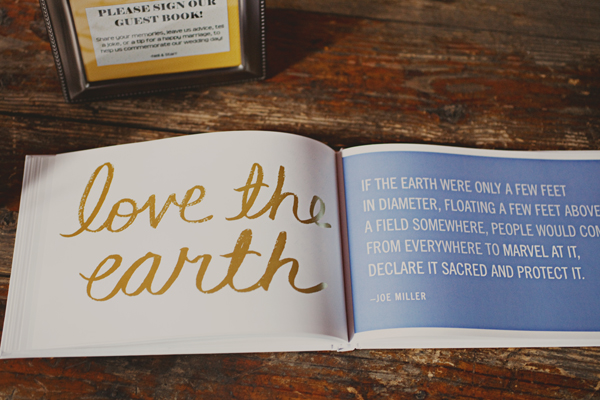 PLEASE SIGN OUR
GUEST BOOK!
Share your memories, leave us advice, tell
a joke, or a tip for a happy marriage, to
help us commemorate our wedding day!
love the
earth
IF THE EARTH WERE ONLY A FEW FEET
IN DIAMETER, FLOATING A FEW FEET ABOVE
A FIELD SOMEWHERE, PEOPLE WOULD
FROM EVERYWHERE TO MARVEL AT IT,
DECLARE IT SACRED AND PROTECT IT.
–JOE MILLER